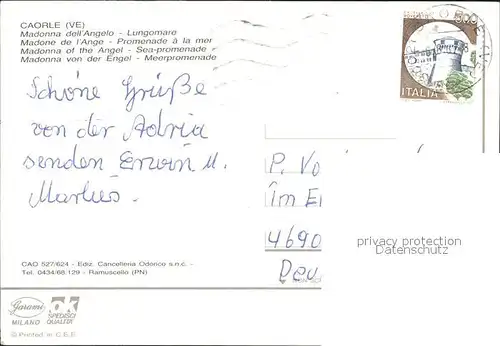 CAORLE (VE)
Madonna dell'Angelo - Lungomare
Madone de l'Ange - Promenade à la mer
Madonna of the Angel - Sea-promenade
Madonna von der Engel - Meerpromenade
500
ITALIA
Schöne Grüße
von der Adria
senden Erwin u.
Markus.
P. Vo
im E
4690
Deu
privacy protection
Datenschutz
CAO 527/624 - Ediz. Cancelleria Odorico s.n.c. -
Tel. 0434/68.129 - Ramuscello (PN)
Garami
MILANO
OK
SPEDISCI
QUALITÀ
© Printed in C.E.E.